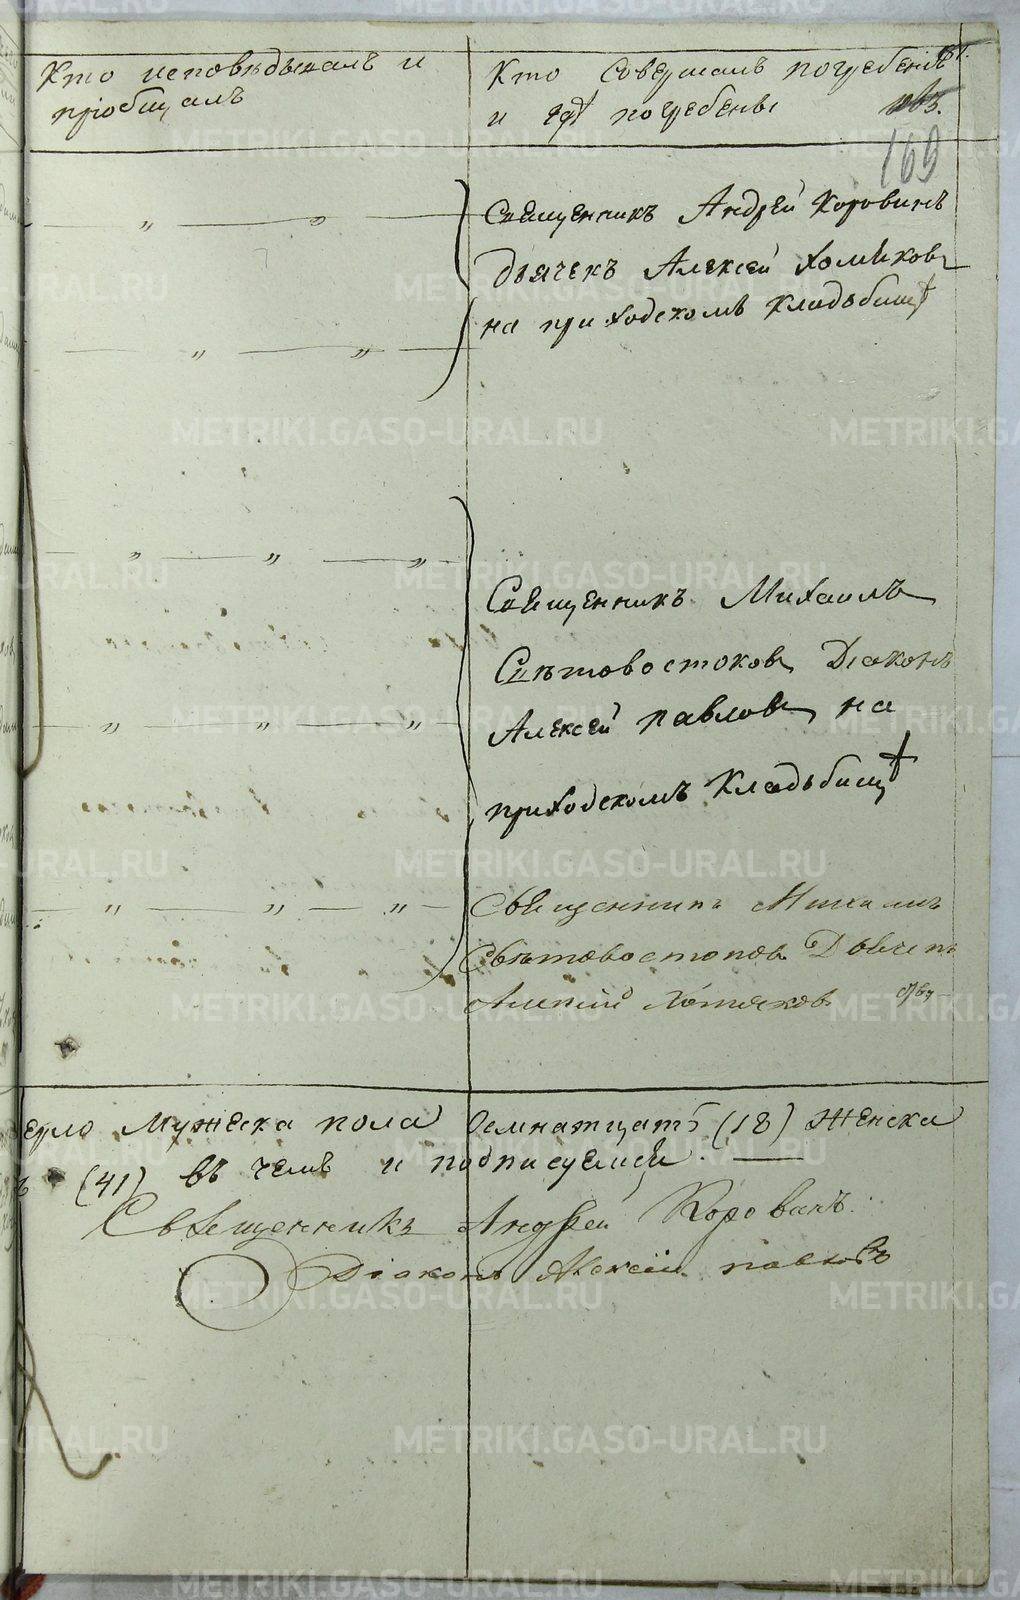 Кто исповѣдывалъ и
пріобщалъ
Кто совершалъ погребеніе
и гдѣ погребены
169
Священникъ Андрей Коровинъ
дьячекъ Алексей Хомяковъ
на приходскомъ кладьбищѣ
Священникъ Михаилъ
Свѣтовостоковъ Діаконъ
Алексей Павловъ на
приходскомъ кладьбищѣ
Священникъ Михаилъ
Свѣтовостоковъ Дьячекъ
Алексій Хомяковъ
ерло мужеска пола осмнатцать (18) женска
(41) въ чемъ и подписуемся.
Священникъ Андрей Коровинъ.
Діаконъ Алексей Павловъ
METRIKI.GASO-URAL.RU